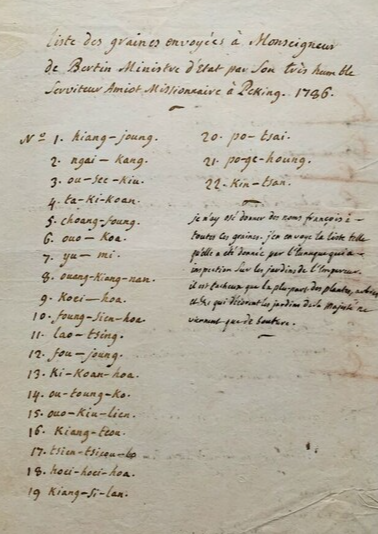 Liste des graines envoyées à Monseigneur
de Bertin Ministre d'Etat par son très humble
Serviteur Amiot Missionnaire à Péking. 1786.
N° 1. hiang-joung.
2. ngai - kang.
3. ou-see-kiu.
4. ta-ki-koan.
5. choang-foung.
6. ouo - koa.
7. yu - mi.
8. ouang-kiang-nan.
9. koei - hoa.
10. foung-sien-hoa.
11. lao - tsing.
12. fou - joung.
13. Ki-Koan-hoa.
14. ou-toung-ko.
15. ouo-kiu-lien.
16. Kiang-teou.
17. tsien-tsieou-lo
18. hoei-hoei-hoa.
19 Kiang-si-lan.
20. po-tsai.
21. po-ge-houng.
22. Kin-tsan.
je n'ay osé donner des noms françois à
toutes ces graines. j'en envoye la liste telle
qu'elle a été donnée par l'Eunuque qui a
inspection sur les jardins de l'Empereur.
il est facheux que la plu-part des plantes, arbres
et qui décorent les jardins de Sa Majesté ne
viennent que de bouture.